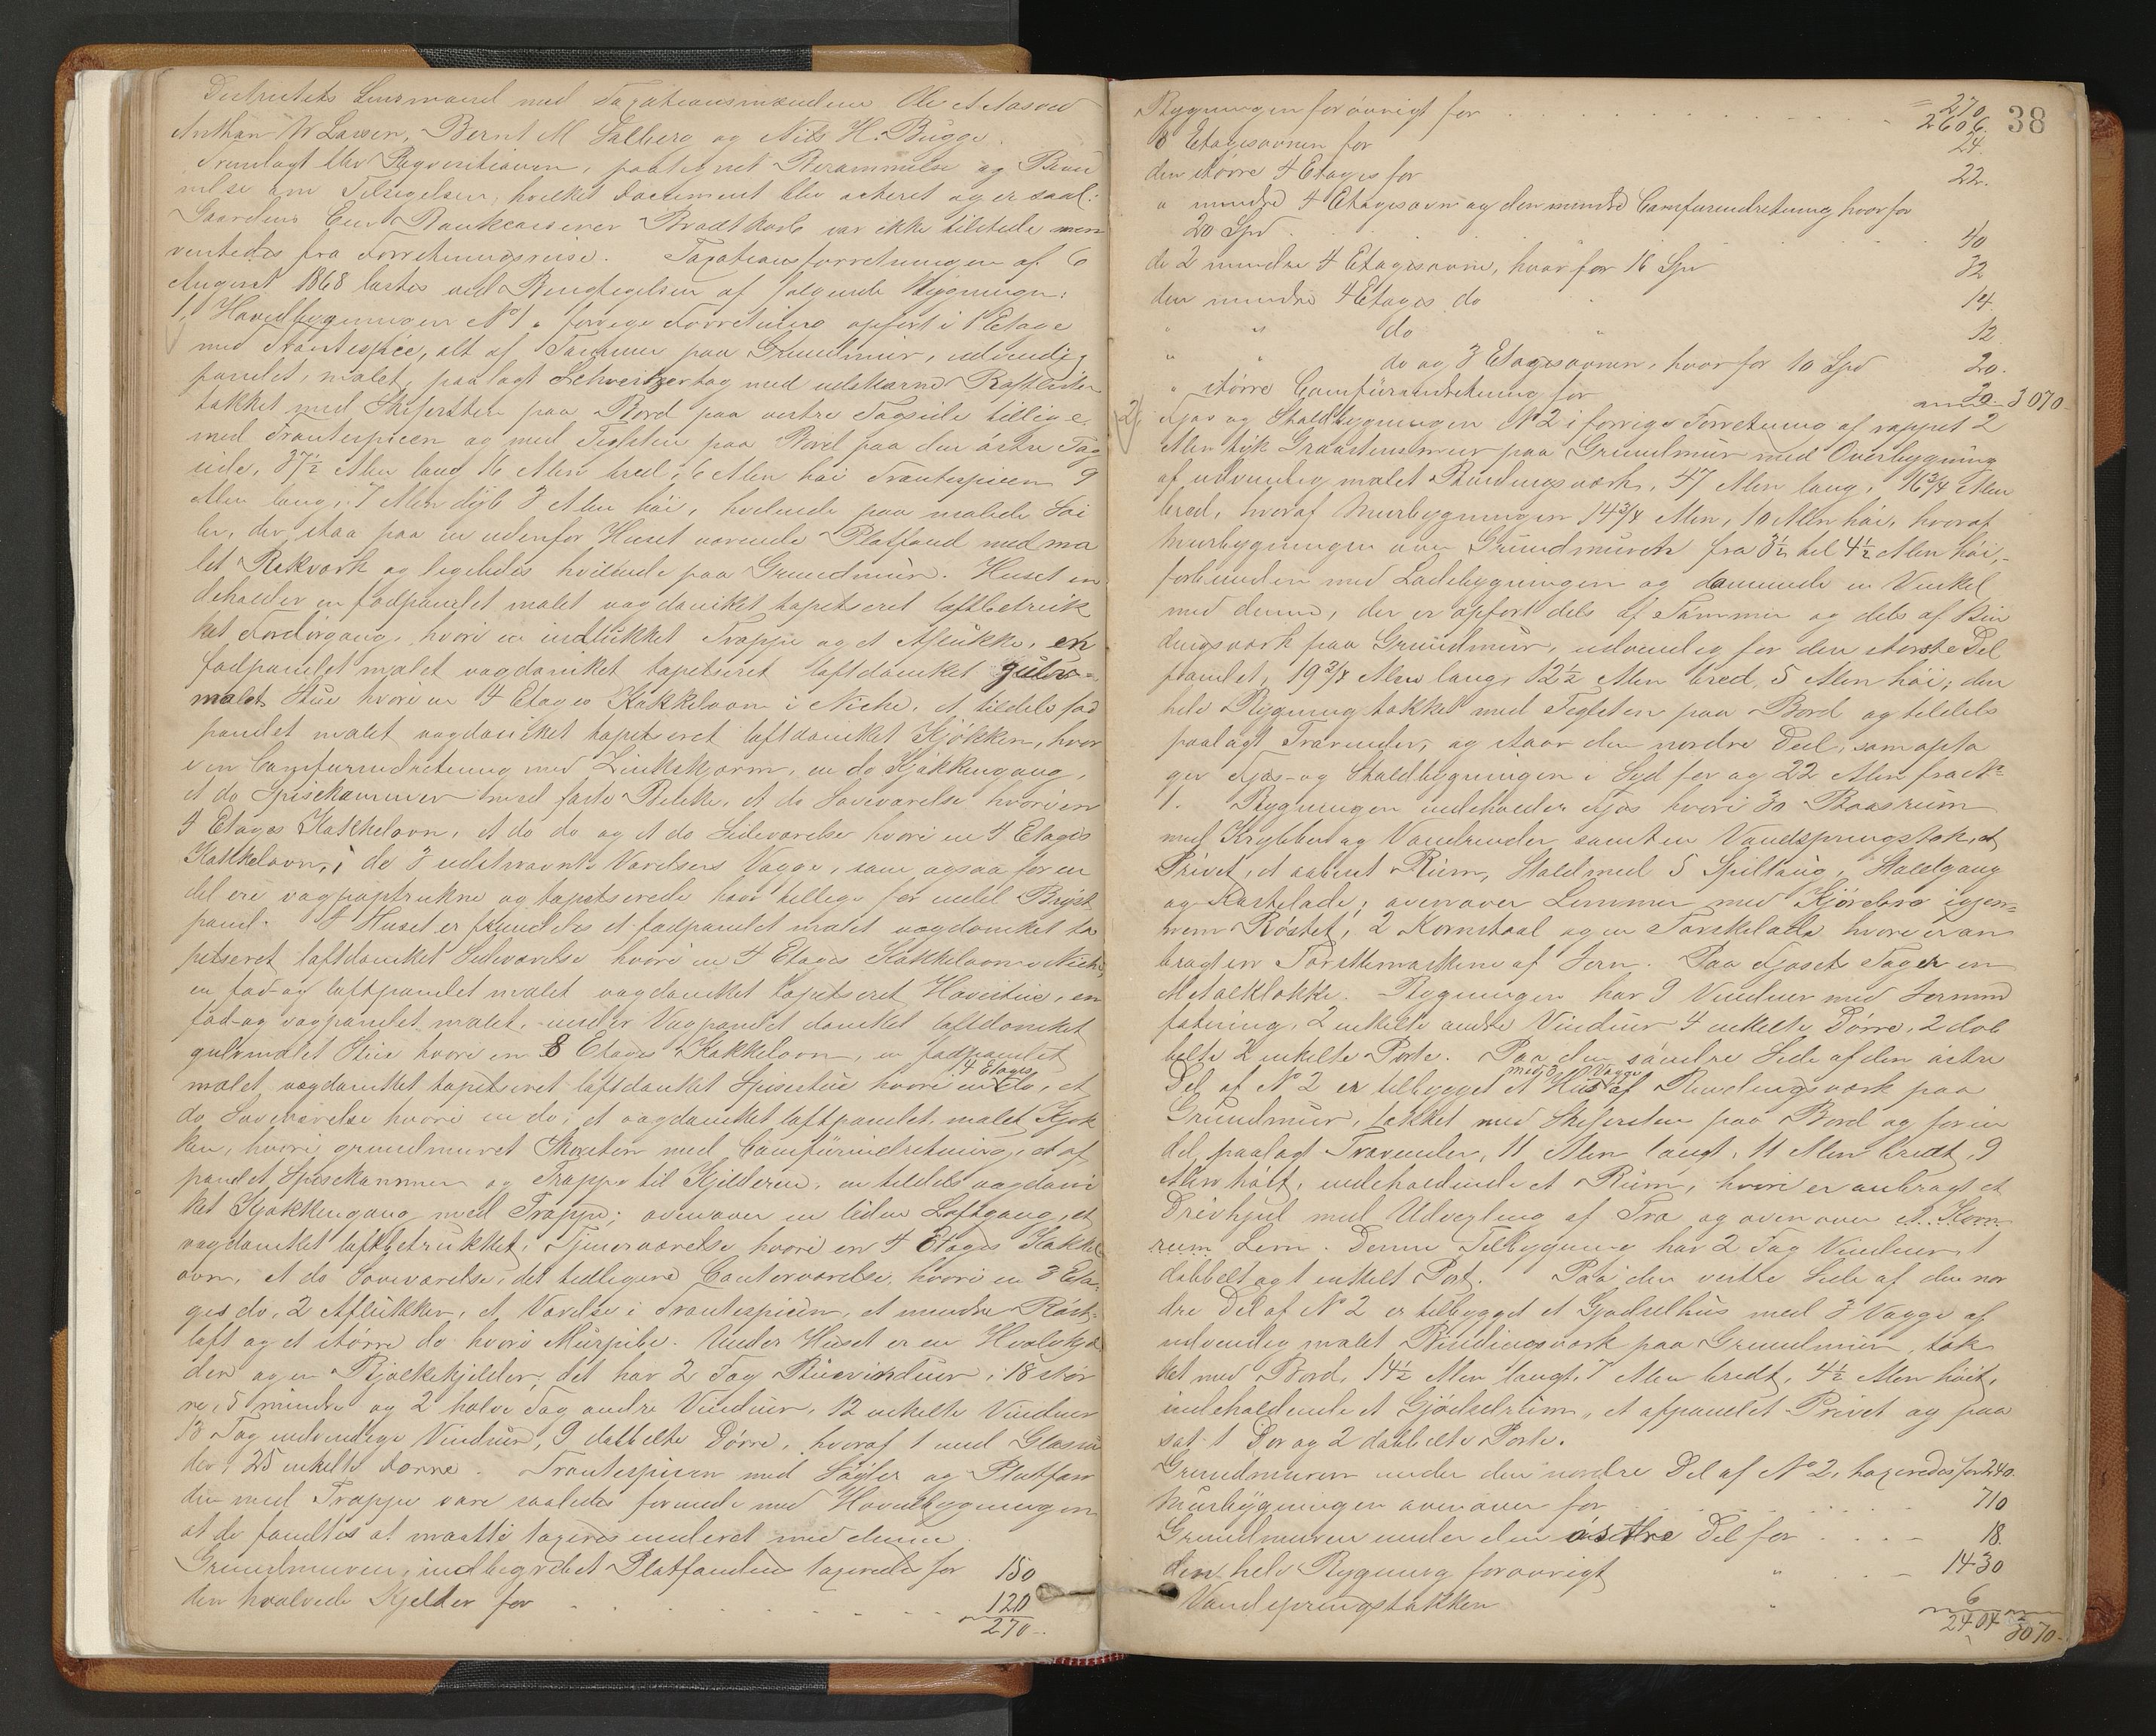 Districtets Lensmand med Taxationsmændene Ole A Aasved
Anthon W Larsen, Bernt M Salberg og Nils H. Bugge.
Fremlagt blev Reqvisitionen, paategnet Berammelse og Bevid
nelse om Tilsigelsen, hvilket Document blev acteret og er saal:
Gaardens Eier Bankcasserer Brodtkorb var ikke tilstede men
ventedes fra Forretningsreise. Taxationsforretningen af 6
August 1868 læstes ved Besigtigelsen af følgende Bygninger:
1, Hovedbygningen No 1 i forrige Forretning opført i 1 Etage
med Frontespice, alt af Tømmer paa Grundmur, udvendig
panelet, malet, paalagt Schweitzertag med udskaarne Raftelister
tækket med Skifersten paa Bord paa vestre Tagside tillige
med Frontespicen og med Teglsten paa Bord paa den østre Tag
side, 37½ Alen lang 16 Alen bred, 6 Alen høi Frontespicen 9
Alen lang, 7 Alen dyb 3 Alen høi, hvilende paa malede Søi
ler, der staa paa en udenfor Huset værende Platfond med ma
let Rækværk og ligeledes hvilende paa Grundmur. Huset in
deholder en fodpanelet malet vægdansket tapetseret loftbetruk
ket Fordørgang, hvori en indlukket Trappe og et Aflukke, en
fodpanelet malet vægdansket tapetseret loftdansket gulv=
malet Stue hvori en 4 Etages Kakkelovn i Niche, et tildels fod
panelet malet vægdansket tapetseret loftdansket Kjøkken, hvor
i en Comfurindretning med Zinkskjærm, en do Kjøkkengang,
et do Spisekammer med faste Bænke, et do Soveværelse hvori en
4 Etages Kakkelovn, et do do og et do Sideværelse hvori en 4 Etages
Kakkelovn, i de 3 udstrævnte Værelsers Vægge, som ogsaa for en
del ere vægpaptrukne og tapetserede hvor tillige for endel Bryst
panel. I Huset er fremdeles et fodpanelet malet vægdansket ta
petseret loftdansket Sideværelse hvori en 4 Etages Kakkelovn i Niche
en fod- og loftpanelet malet vægdansket tapetseret Havestue, en
fod- og vægpanelet malet, under Vægpanelet dansket loftdansket
gulvmalet Stue hvori en 8 Etages Kakkelovn, en fodpanelet
malet vægdansket tapetseret loftdansket Spisestue hvori en 4 Etages do, et
do Soveværelse hvori en do, et vægdansket loftpanelet, malet Kjøk
ken, hvori grundmuret Skorsten med Comfurindretning, et af
panelet Spisekammer og Trappe til Kjelderen, en tildels vægdans
ket Kjøkkengang med Trappe; ovenover en liden Loftgang, et
vægdansket loftbetrukket, Tjenerværelse hvori en 4 Etages Kakkel
ovn, et do Soveværelse, det tidligere Contorværelse, hvori en 3 Eta-
ges do, 2 Aflukker, et Værelse i Frontespicen, et mindre Røst-
loft og et større do hvori Murpibe. Under Huset er en Hvælvkjel
der og en Bjælkekjelder, det har 2 Fag Buevinduer, 18 stør
re, 5 mindre og 2 halve Fag andre Vinduer, 12 enkelte Vinduer
13 Fag indvendige Vinduer, 9 dobbelte Dørre, hvoraf 1 med Glasru
der, 25 enkelte Dørre. Frontespicen med Søiler og Platfon
den med Trappe vare saaledes forenede med Hovedbygningen
at de fandtes at maatte taxeres underet med denne.
Grundmuren, indbegrebet Platfonden taxeredes for 150
den hvælvede Kjelder for 120
270.
38
Bygningen forøvrigt for = 270
2606.
8 Etagesovnen for 24.
den større 4 Etages for 22.
" mindre 4 Etagesovn og den mindre Comfurindretning hvorfor
20 Spd 40
de 2 mindre 4 Etagesovne, hvorfor 16 Spd 32
den mindre 4 Etages do 14.
" " do " 12
" " do og 3 Etagesovnen, hvorfor 10 Spd 20.
" større Comfurindretning for 20 3070
2, Fjøs og Staldbygningen No 2 i forrige Forretning af rappet 2
Alen tyk Graastensmur paa Grundmur med Overbygning
af udvendig malet Bindingsværk, 47 Alen lang, 16¾ Alen
bred, hvoraf Murbygningen 14¾ Alen, 10 Alen høi, hvoraf
Murbygningen over Grundmuren fra 3½ til 4½ Alen høi,-
forbunden med Ladebygningen og dannende en Vinkel
med denne, der er opført dels af Tømmer og dels af Bin
dingsværk paa Grundmur, udvendig for den største Del
panelet, 19¾ Alen lang, 12½ Alen bred, 5 Alen høi; den
hele Bygning tækket med Teglsten paa Bord og tildels
paalagt Trærender, og staar den nordre Deel, som opta
ger Fjøs- og Staldbygningen i Syd for og 22 Alen fra No
1. Bygningen indeholder Fjøs hvori 30 Baasrum
med Krybber og Vandrender samt en Vandspringstok, et
Privet, et aabent Rum, Stald med 5 Spiltaug, Staldgang
og Hestelade; ovenover Lemmer med Kjørebro igjen=
nem Røstet, 2 Kornstaal og en Tærskelade hvori er an
bragt en Tærskemaskine af Jern. Paa Fjøset Tag er en
Metalklokke. Bygningen har 9 Vinduer med Jernind
fatning, 2 enkelte andre Vinduer 4 enkelte Dørre, 2 dob
belte 2 enkelte Porte. Paa den søndre Side af den østre
Del af No 2 er tilbygget et Hus med 3 Vægge af Bindingsværk paa
Grundmur, tækket med Skifersten paa Bord og for en
del paalagt Trærender, 11 Alen langt, 11 Alen bredt, 9
Alen høit, indeholdende et Rum, hvori er anbragt et
Drivhjul med Udvexling af Træ og ovenover et Korn
rum Lem. Denne Tilbygning har 2 Fag Vinduer, 1
dobbelt og 1 enkelt Port. Paa den vestre Side af den nor
dre Del af No 2 er tilbygget et Gjødselhus med 3 Vægge af
udvendig malet Bindingsværk paa Grundmur, tæk
ket med Bord, 14½ Alen langt, 7 Alen bredt, 4½ Alen høit,
indeholdende et Gjødselrum, et afpanelet Privet og paa
sat 1 Dør og 2 dobbelte Porte.
Grundmuren under den nordre Del af No 2, taxeredes for 240.
Murbygningen ovenover for 710
Grundmuren under den østre Del for 18.
den hele Bygning forøvrigt " 1430
Vandspringstokken " 6
2404 3070.